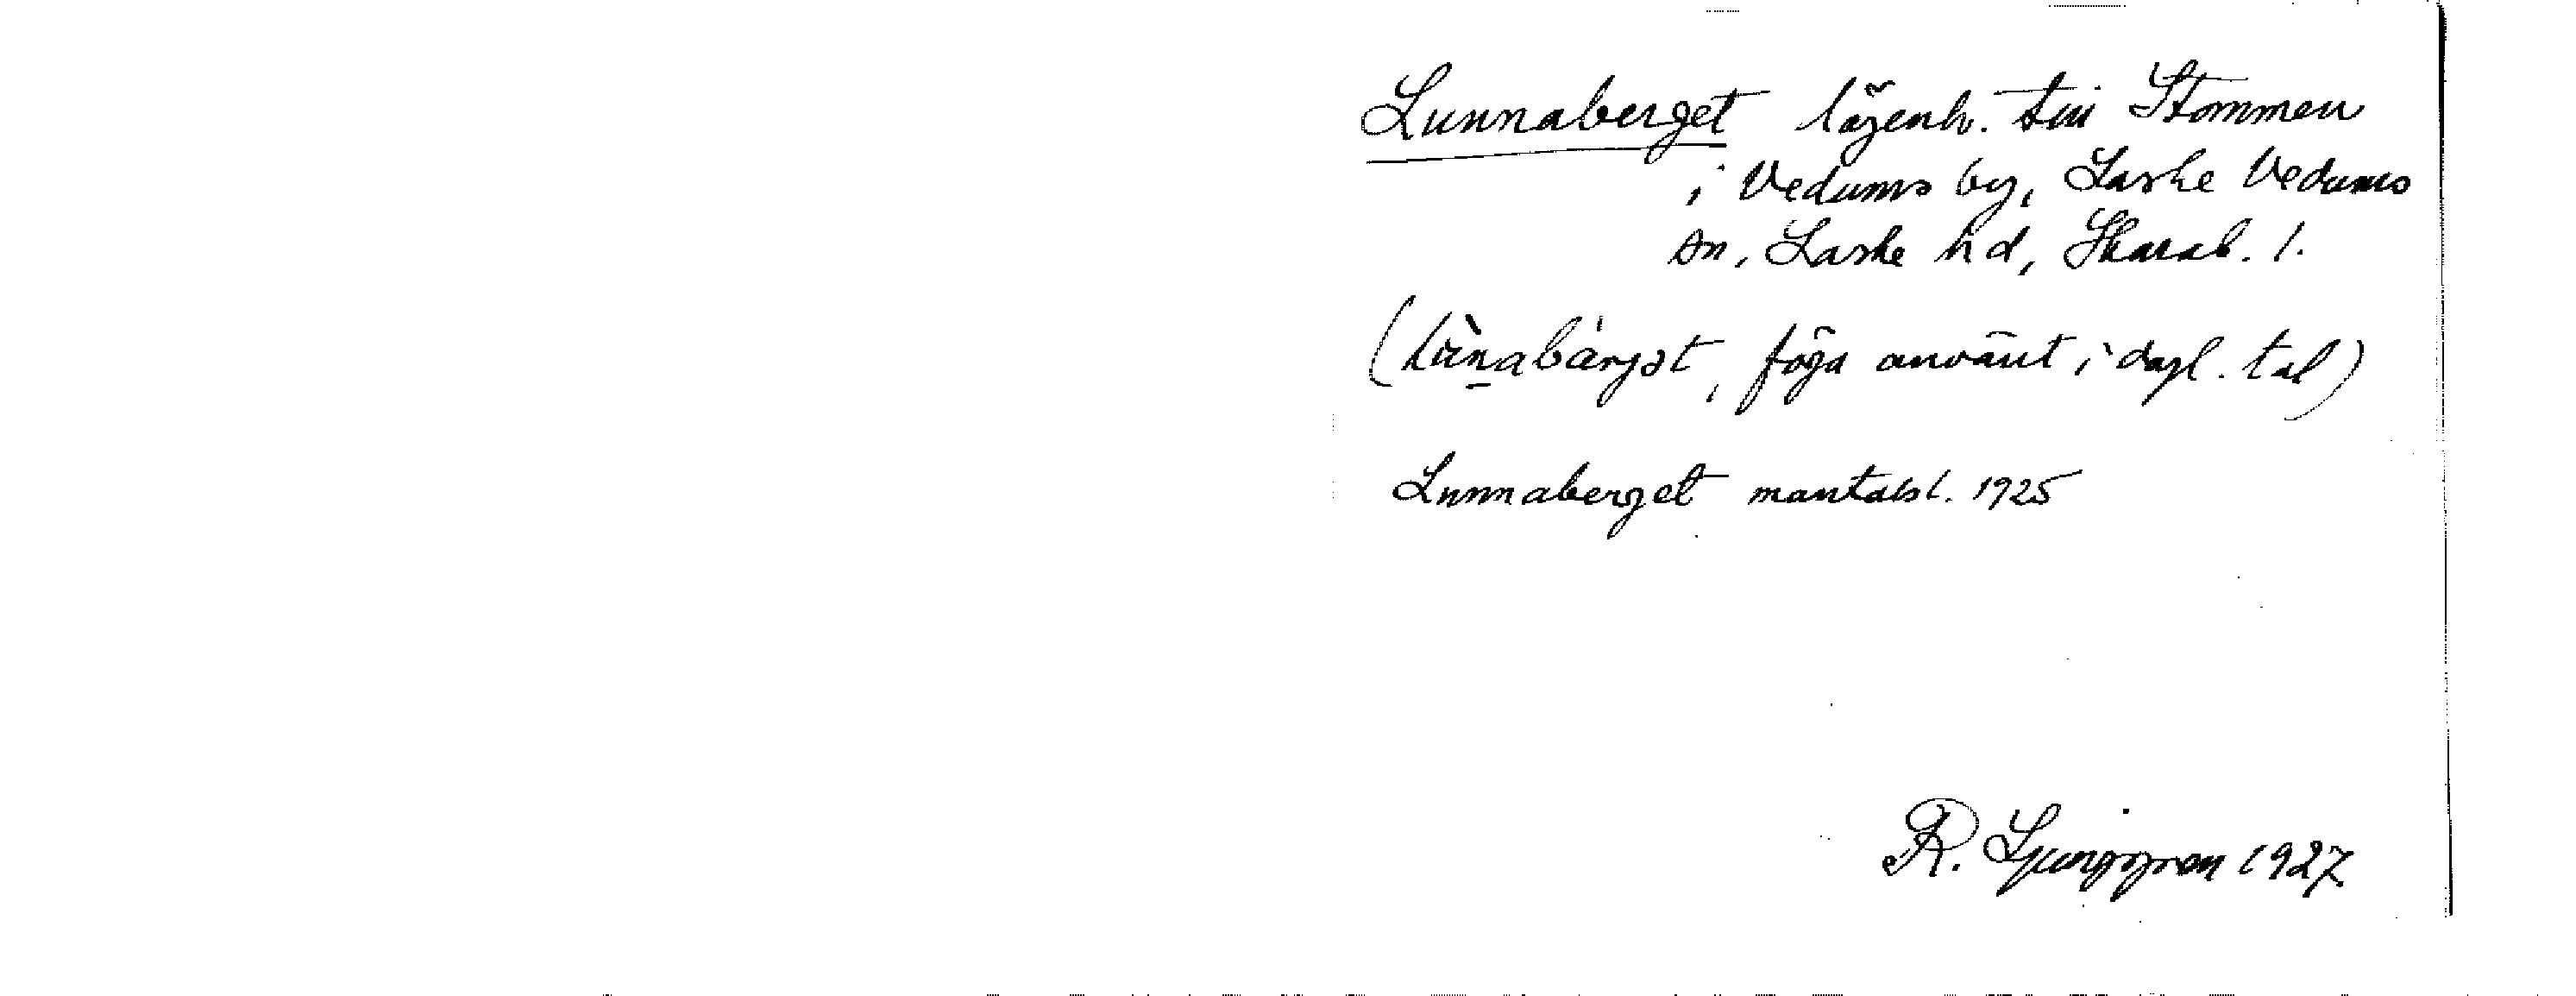 Lunnaberget lägenh. till Stommen
i Vedums by, Laske Vedums
sn, Laske hd, Skarab. l.
(lùnabárjət, föga använt i dagl. tal)
Lunnaberget mantalsl. 1925
R. Ljunggren 1927